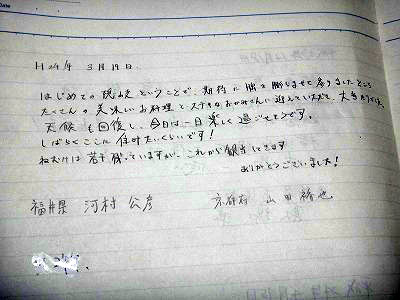 H24年 3月19日
はじめての硯峡ということで、期待に胸を膨らませて参りましたところ
たくさんの美味しいお料理とステキなおかみさんに迎えていただき、大
天候も回復し、今日は一日楽しく過ごせそうです。
しばらくここに住みたいくらいです!
ねむけは若干残っていますが、これから観光してきます
ありがとうございました!
福井県 河村 公彦 京都府 山田 裕也